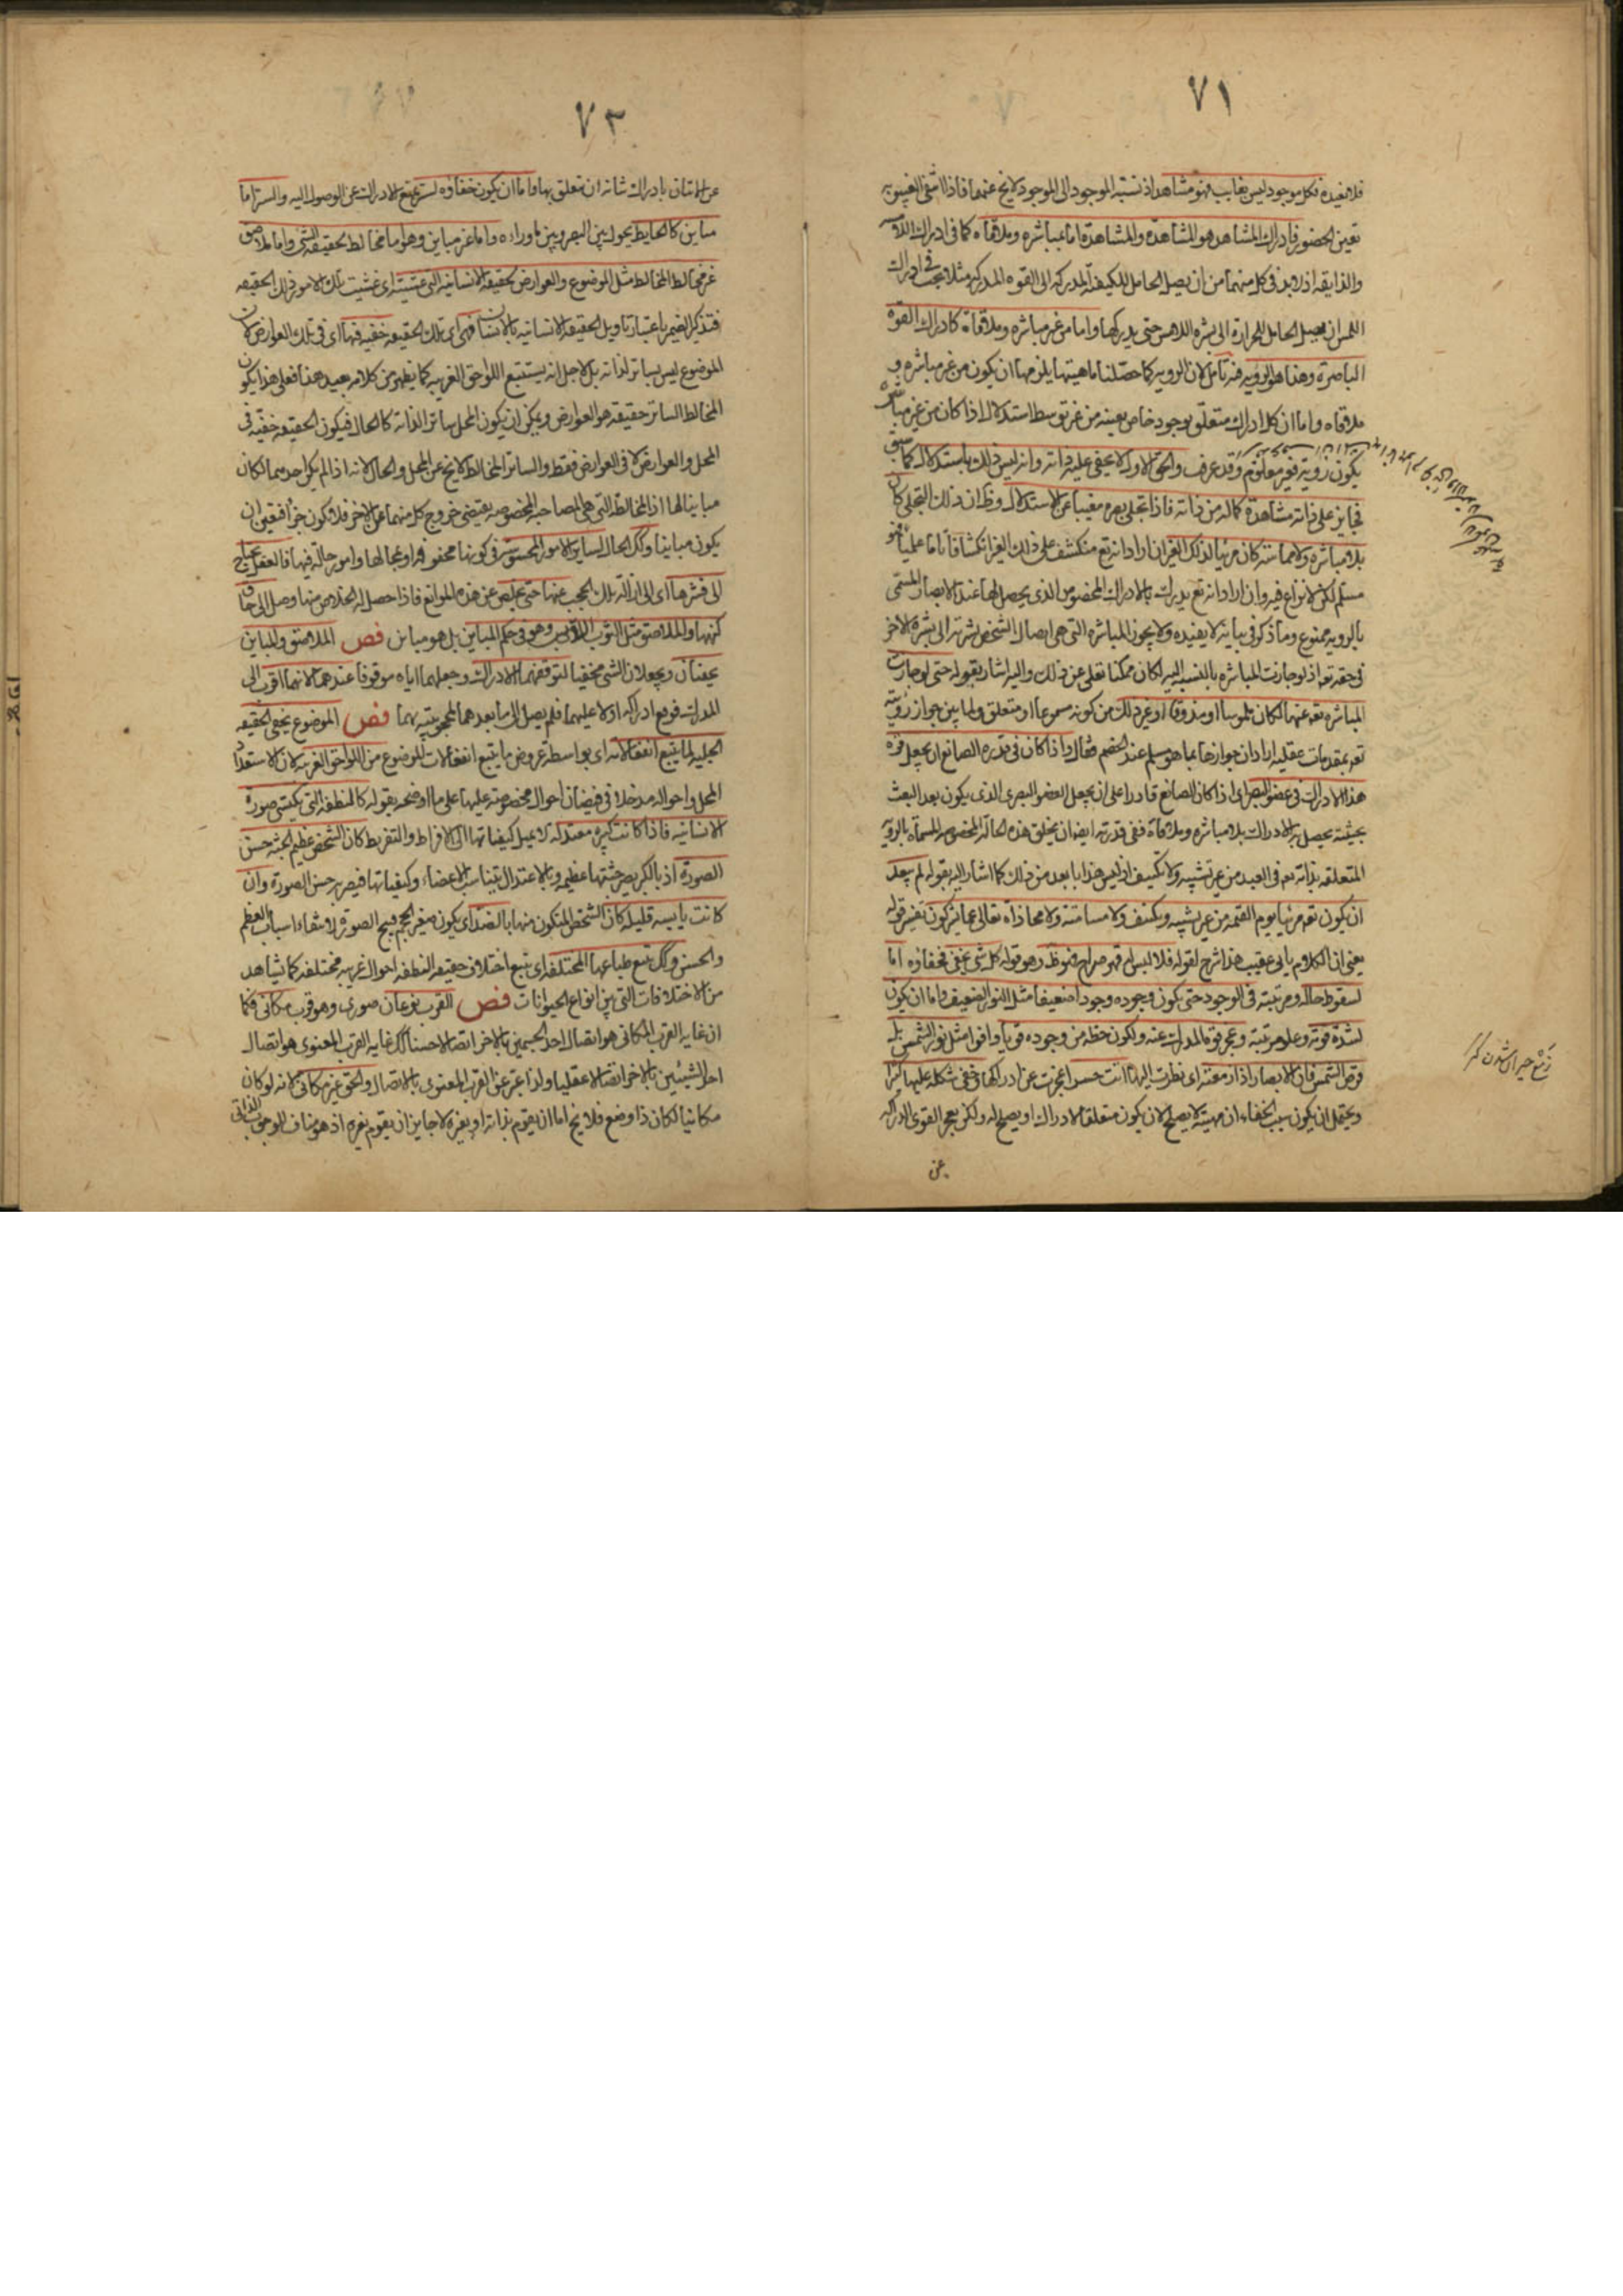 ٧١
فلا يفيده فكل موجود ليس بغايب فهو مشاهد اذ نسبة الموجود الى الموجود لا يخ عنهما فاذا انتفى الغيبوبه
تعين الحضور فادراك المشاهد هو المشاهدة والمشاهدة اما بمباشره وملاقاه كما فى ادراك اللامسه
والذايقه اذ لا بد فى كل منهما من ان يصل الحامل للكيفية المدركه الى القوه المدركه مثلا يجب فى ادراك
اللمس ان يصل الحامل للحرارة الى بشره اللامس حتى يدركها واما من غير مباشره وملاقاة كادراك القوة
الباصرة وهذا هو الرويه فيه تامل لان الرويه كما حصّلنا ماهيتها يلزمها ان يكون من غير مباشره و
ملاقاه واما ان كل ادراك متعلق بوجود خاص بعينه من غير توسط استدلال اذا كان من غير مباشره
يكون رؤية فغير معلوم وقد عرف والحق الاول لا يخفى عليه ذاته وانه ليس ذلك باستدلال كما سبق
فجايز على ذاته مشاهدة كماله من ذاته فاذا تجلى لغيره مغنيا عن الاستدلال وظ ان ذلك التجلى كان
بلا مباشره ولا مماسة كان مرئيا لذلك الغير ان اراد انه تع منكشف على ذلك الغير انكشافا تاما علميا فهو
مسلم لكن لا نزاع فيه وان اراد انه تع يدرك بالادراك المخصوص الذى يحصل لها عند الابصار المسمى
بالرويه ممنوع وما ذكر فى بيانه لا يفيده ولا يجوز المباشره التى هى ايصال الشخص بشرته الى بشرة الاخر
فى حقه تعه اذ لو جازت المباشره بالنسبه اليه لكان ممكنا تعلى عن ذلك واليه اشار بقوله حتى لو جازت
المباشره تعه عنها لكان ملموسا او مذوقا او غير ذلك من كونه مسموعا او متعلق ولما بين جواز رؤيته
تعه بمقدمات عقليه اراد ان جوازها بما هو مسلم عند الخصم فقال واذا كان فى قدره الصانع ان يجعل قوة
هذا الادراك فى عضو البصر اى اذا كان الصانع قادرا على ان يجعل العضو البصرى الذى يكون بعد البعث
بحيث يحصل به الادراك بلا مباشره وملاقاة ففى قدرته ايضا ان يخلق هذه الحالة المخصوصه المسماة بالرويه
المتعلقه بذاته تعه فى العبد من غير تشبيه ولا تكييف اذ ليس هذا بابعد من ذلك كما اشار اليه بقوله لم يبعد
ان يكون تعه مرئيا يوم القيمه من غير تشبيه وتكييف ولا مسامته ولا محاذاة تعالى عما يشركون تفسير قوله
يعنى ان الكلام ياتى عقيب هذا شرح لقوله فلا لبس له فهو صراح فهو ظ وهو قوله كل شى يخفى فخفاؤه اما
لسقوط حاله ومرتبته فى الوجود حتى يكون وجوده وجودا ضعيفا مثل النور الضعيف واما ان يكون
لشدة قوته وعلو مرتبته وعجز قوة المدرك عنه ولكون حظه من وجوده قويا وافرا مثل نور الشمس بل
قرص الشمس فان الابصار اذا رمقته اى نظرت اليها انت حسرا عجزت عن ادراكها وخفى شكله عليها كثيرا
ويحتمل ان يكون سبب الخفاء ان مهيته لا يصلح لان يكون متعلقا لادراك او يصلح له ولكن يعجز القوى الدراكه
عن
٧٢
عن الاتيان بادراك شانه ان تتعلق بها واما ان يكون خفاؤه لستر يمنع الادراك عن الوصول اليه والستر اما
مباين كالحايط يحول بين البصر وبين ماوراءه واما غير مباين وهو اما مخالط لحقيقة الشى واما ملاصق
غير مخالط المخالط مثل الموضوع والعوارض لحقيقة الانسانيه التى غشيته اى غشيت تلك الامور ذلك الحقيقه
فتذكير الضمير باعتبار تاويل الحقيقه الانسانيه بالانسان فهى اى تلك الحقيقه خفيه فيها اى فى تلك العوارض لان
الموضوع ليس بساتر لذاته بل لاجل انه يستتبع اللواحق الغريبه كما يظهر من كلامه بعيد هذا فعلى هذا يكون
المخالط الساتر حقيقه هو العوارض ويمكن ان يكون المحل ساترا لذاته كالحال فيكون الحقيقه خفيه فى
المحل والعوارض لا فى العوارض فقط والساتر المخالط لا يخ عن المحل والحال لانه اذا لم يكن احدهما لكان
مباينا لها اذ المخالطه التى هى المصاحبه المخصوصه يقتضى خروج كل منهما عن الاخر فلا يكون جزأ فتعين ان
يكون مباينا وكك الحال لساير الامور المحسوسه فى كونها محفوفه او بمحالها وامور حالة فيها فالعقل يحتاج
الى قشرها اى الى ازالة تلك الحجب عنها حتى يخلص عن هذه الموانع فاذا حصل له الخلاص منها وصل الى حاق
كنهها والملاصق مثل الثوب الملابس وهو فى حكم المباين بل هو مباين فص الملاصق والمباين
يخفيان ويجعلان الشى مخفيا لتوقفهما الادراك وجعلهما اياه موقوفا عندهما لانهما اقرب الى
المدرك فوقع ادراكه اولا عليهما فلم يصل الى ما بعدهما لمحجوبيته بهما فص الموضوع يخفى الحقيقه
الجليه لما يتبع انفعالاته اى بواسطه عروض ما يتبع انفعالات الموضوع من اللواحق الغريبه لان لاستعداد
المحل واحواله مدخلا فى فيضان احوال مخصوصه عليها على ما اوضحه بقوله كالنطفه التى يكتسى صورة
الانسانيه فاذا كانت كثيره معتدله لا يميل كيفياتها الى الافراط والتفريط كان الشخص عظيم الجثه حسن
الصورة اذ بالكبر يصير جثتها عظيمه وبالاعتدال يتناسب الاعضاء وكيفياتها فيصير حسن الصورة وان
كانت يابسه قليله كان الشخص المتكون منها بالضد اى يكون صغير الحجم قبيح الصورة لانتفاء اسباب العظم
والحسن وكك يتبع طباعها المختلفه اى يتبع اختلاف حقيقه النطفه احوال غريبه مختلفه كما يشاهد
من الاختلافات التى بين انواع الحيوانات فص القرب نوعان صورى وهو قرب مكانى فكما
ان غايه القرب المكانى هو اتصال احد الجسمين بالاخر اتصالا حسيا كك غايه القرب المعنوى هو اتصال
احد الشيئين بالاخر اتصالا عقليا ولذا عبر عن القرب المعنوى بالاتصال والحق غير مكانى لانه لو كان
مكانيا لكان ذا وضع فلا يخ اما ان يقوم بذاته او بغيره لا جايز ان يقوم بغيره اذ هو مناف الوجوب الذاتى